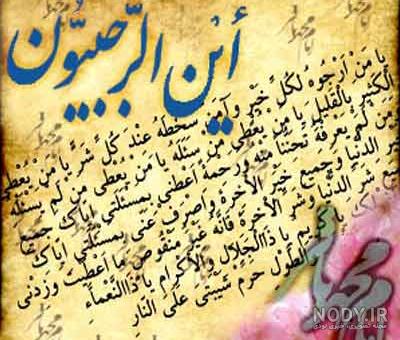 أين الرجبيون
يا من أرجوه لكل خير و آمن سخطه عند كل شر يا من يعطي
الكثير بالقليل يا من يعطي من سئله يا من يعطي من لم يسئله
و من لم يعرفه تحننا منه و رحمة أعطني بمسئلتي إياك جميع
خير الدنيا و جميع خير الآخرة و اصرف عني بمسئلتي إياك
جميع شر الدنيا و شر الآخرة فإنه غير منقوص ما أعطيت و زدني
من فضلك يا كريم يا ذا الجلال و الإكرام يا ذا النعماء
الطول حرم شيبتي على النار
NODY.IR